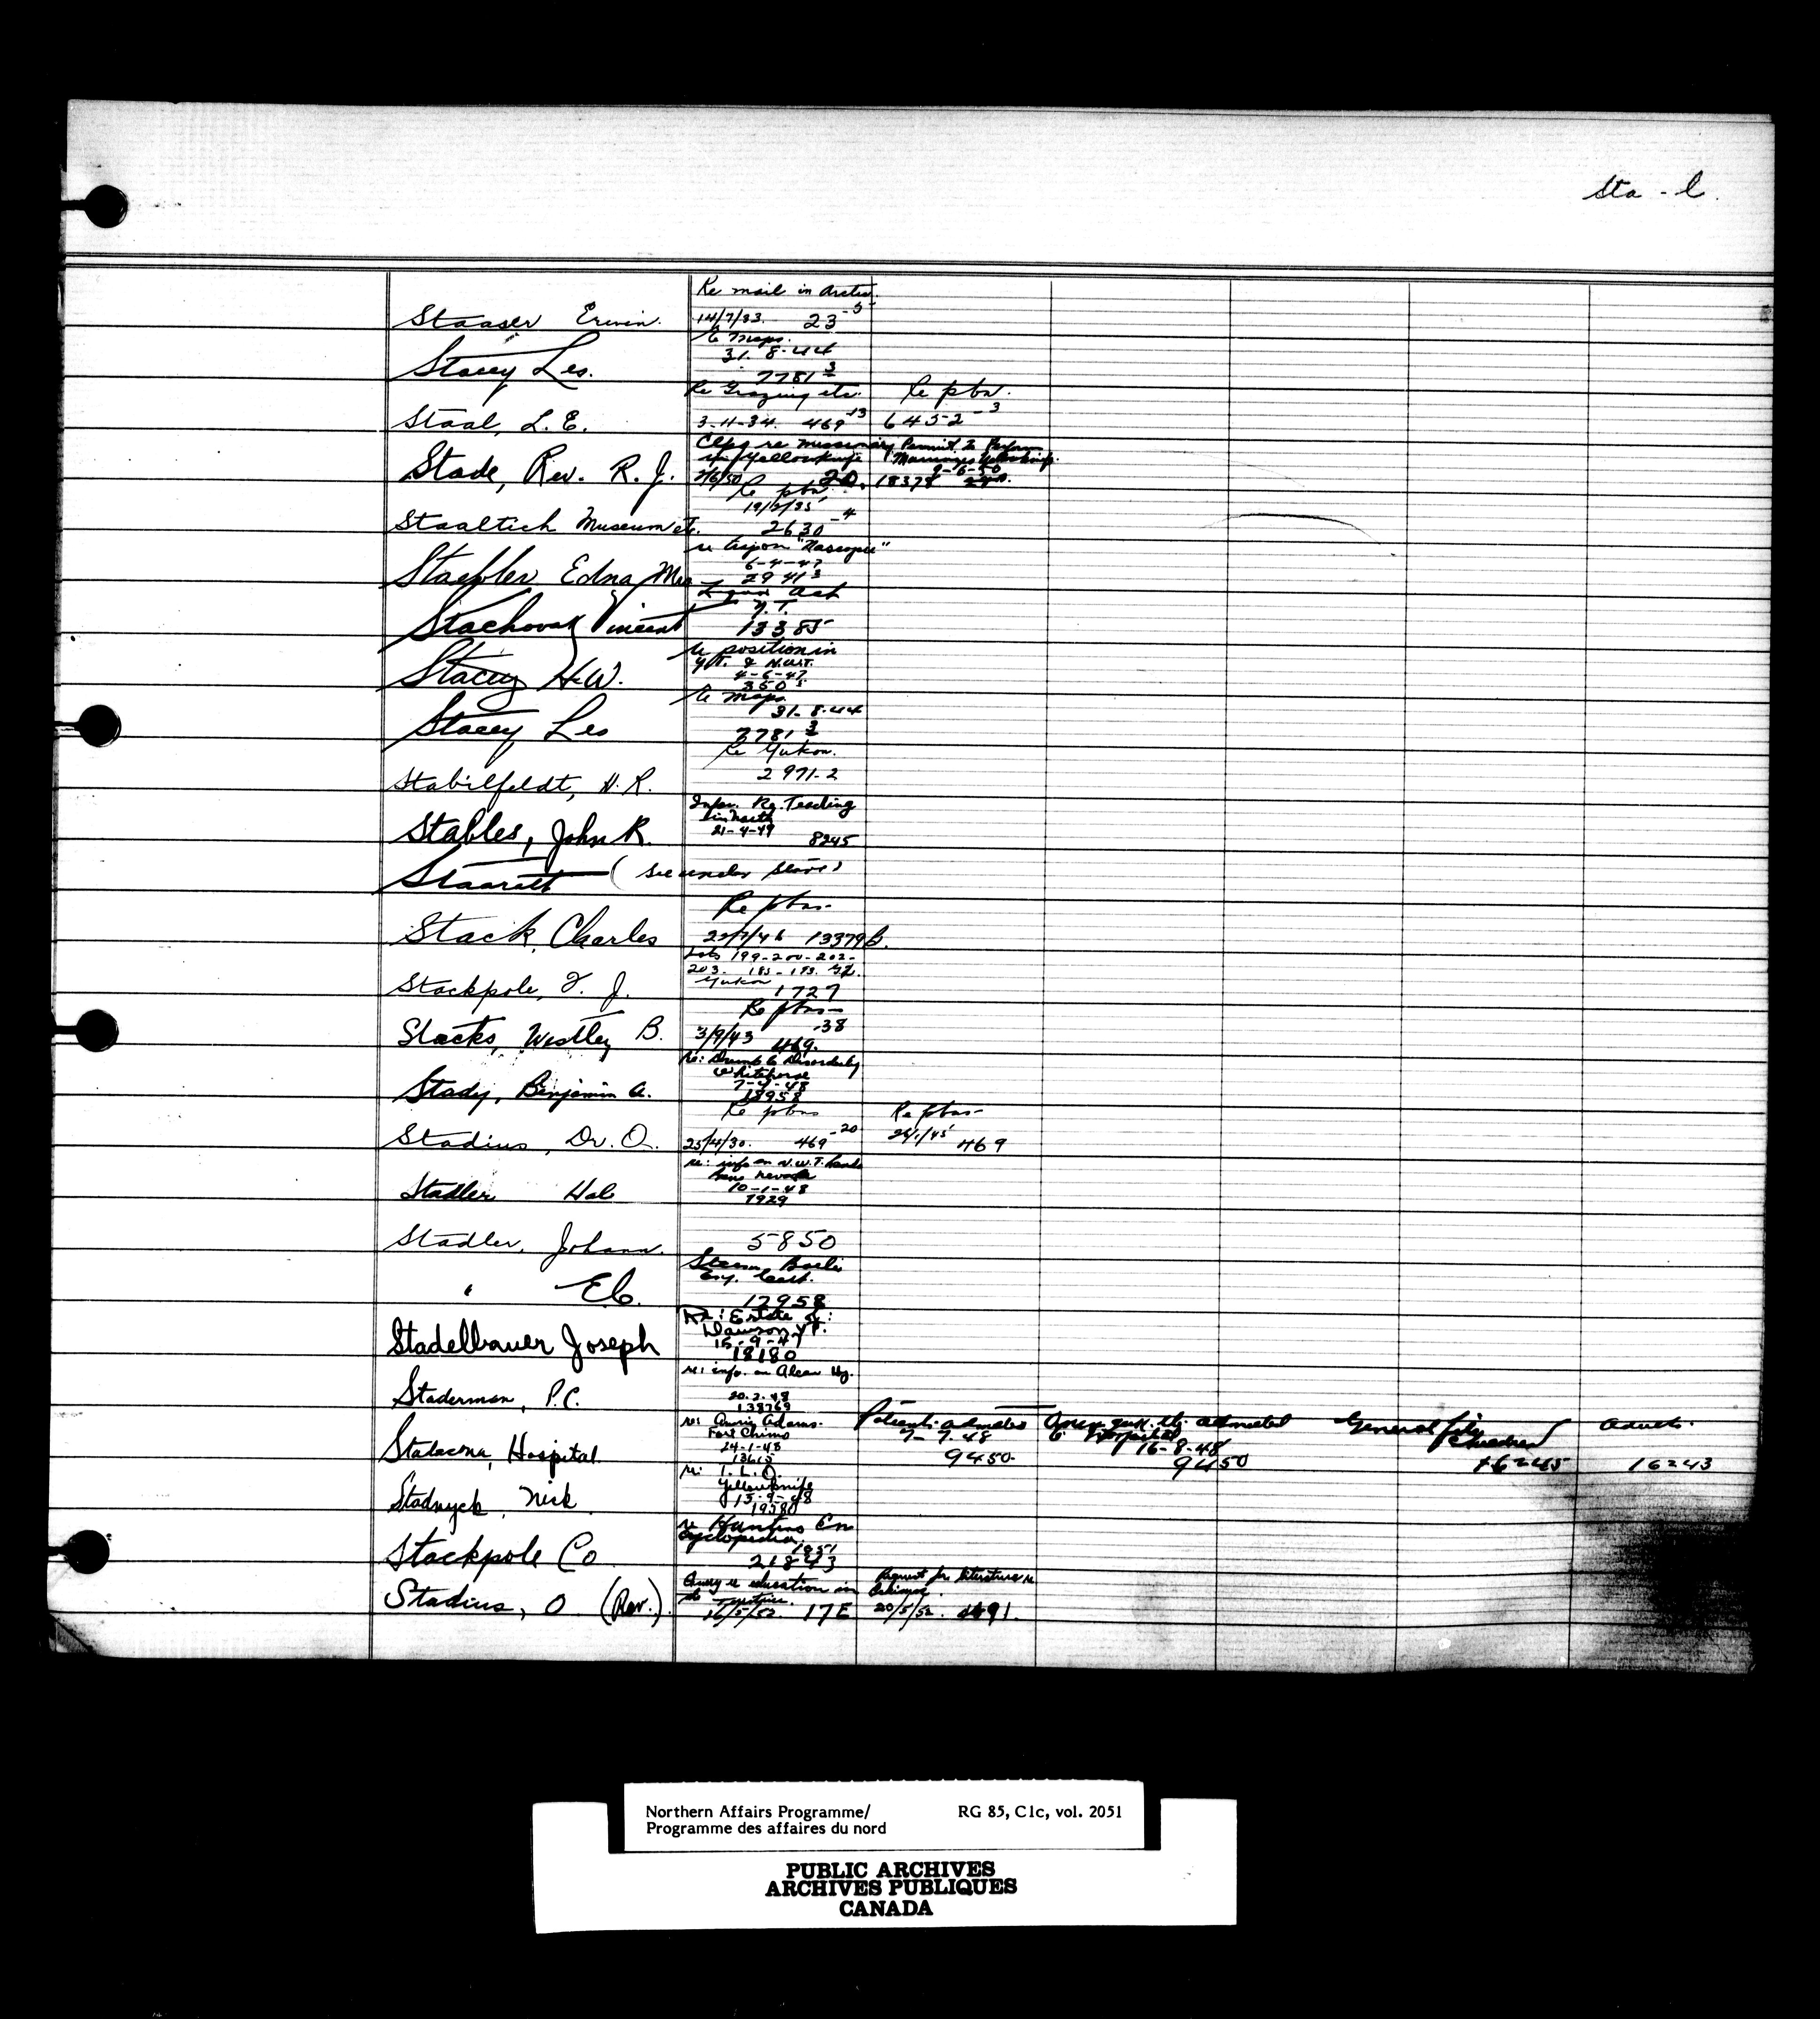 Sta - l.
Re mail in Arctic.
Staaser Erwin. 14/7/33. 23-5
Re Maps.
31-8-44
Stacey Les. 7781-3
Re Grazing etc. Re pbn.
Staal, L. E. 3-11-34. 469-13 6452-3
Clpg re missionary Permit to Perform
in Yellowknife Marriages Yellowknife
9-6-50
Stade, Rev. R. J. 2/6/50 20. 18378
Re pbn.
19/2/35
Staaltich Museum etc. 2630-4
re trip on "Nascopie"
6-4-47
Staebler Edna Mrs 2941-3
Liquor Act
Y.T.
Stachovaz Vincent 13385
Re position in
Y.T. & N.W.T.
4-6-47
Stacey H.W. 350-5
Re maps
31-8-44
Stacey Les 7781-3
Re Yukon.
Stabilfeldt, H. R. 2971-2
Infor. Rg. Teaching
in North
21-4-49
Stables, John R. 8245
Staaratt (see under Stare)
Re pbns-
Stack, Charles 22/7/46 13379B.
Lots 199-200-202-
203. 185-193.
Yukon
Stackpole, F. J. 1727
Re pbns-
Stacks, Westley B. 3/9/43 469-38
re: Drunk & Disorderly
Whitehorse
7-4-48
Stady, Benjamin A. 18958
Re pbns Re pbns-
Stadius, Dr. O. 25/4/30. 469-20 24/1/45 469
re: info on N.W.T. lands
Reno Nevada
10-1-48
Stadler Hal 7929
Stadler, Johann. 5850
Steam Boiler
Eng. Cert.
" Eb. 12958
Re: Estate of:
Dawson Y.T.
15-9-47
Stadelbauer Joseph 18180
re: info. on Alcan Hy.
20-2-48
Staderman, P.C. 138769
re: Annie Adams. Patients admitted Open qus. Ms. admitted General file Adults.
Fort Chimo 7-7-48 to Hospital Children
24-1-48 16-8-48
Stadacona, Hospital 13615 9450- 9450 16245 16243
re: T.L.O.
Yellowknife
15-9-48
Stadnyck, Nick 19380
re Hunting En
cyclopedia
1951
Stackpole Co 21843
Query re education in Request for literature re
Eskimos.
Stadius, O (Rev.). 16/5/52 17E 20/5/52. 4491.
Northern Affairs Programme/ RG 85, C1c, vol. 2051
Programme des affaires du nord
PUBLIC ARCHIVES
ARCHIVES PUBLIQUES
CANADA